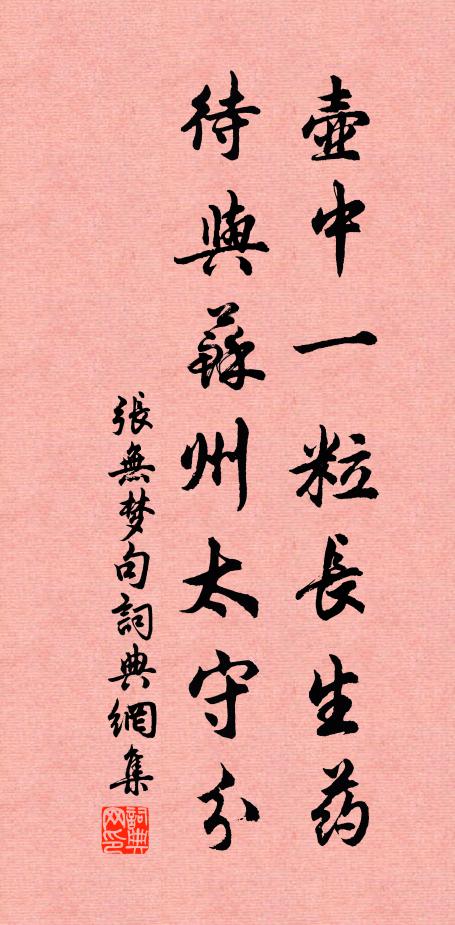 壺中一粒長生药
待與蘇州太守分
張無梦句詞典網集
詞典
网印